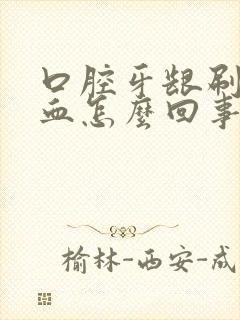 口腔牙龈刷
血怎麽回事
榆林-西安-成